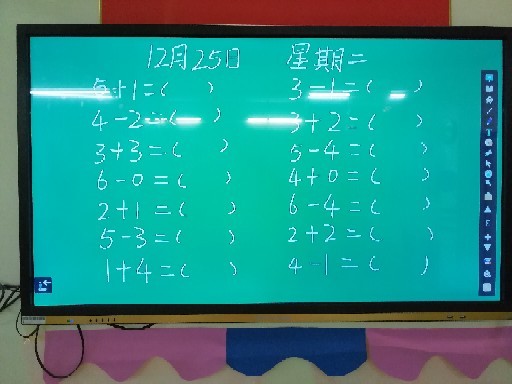 12月25日 星期二
5+1=( ) 3-1=( )
4-2=( ) 3+2=( )
3+3=( ) 5-4=( )
6-0=( ) 4+0=( )
2+1=( ) 6-4=( )
5-3=( ) 2+2=( )
1+4=( ) 4-1=( )